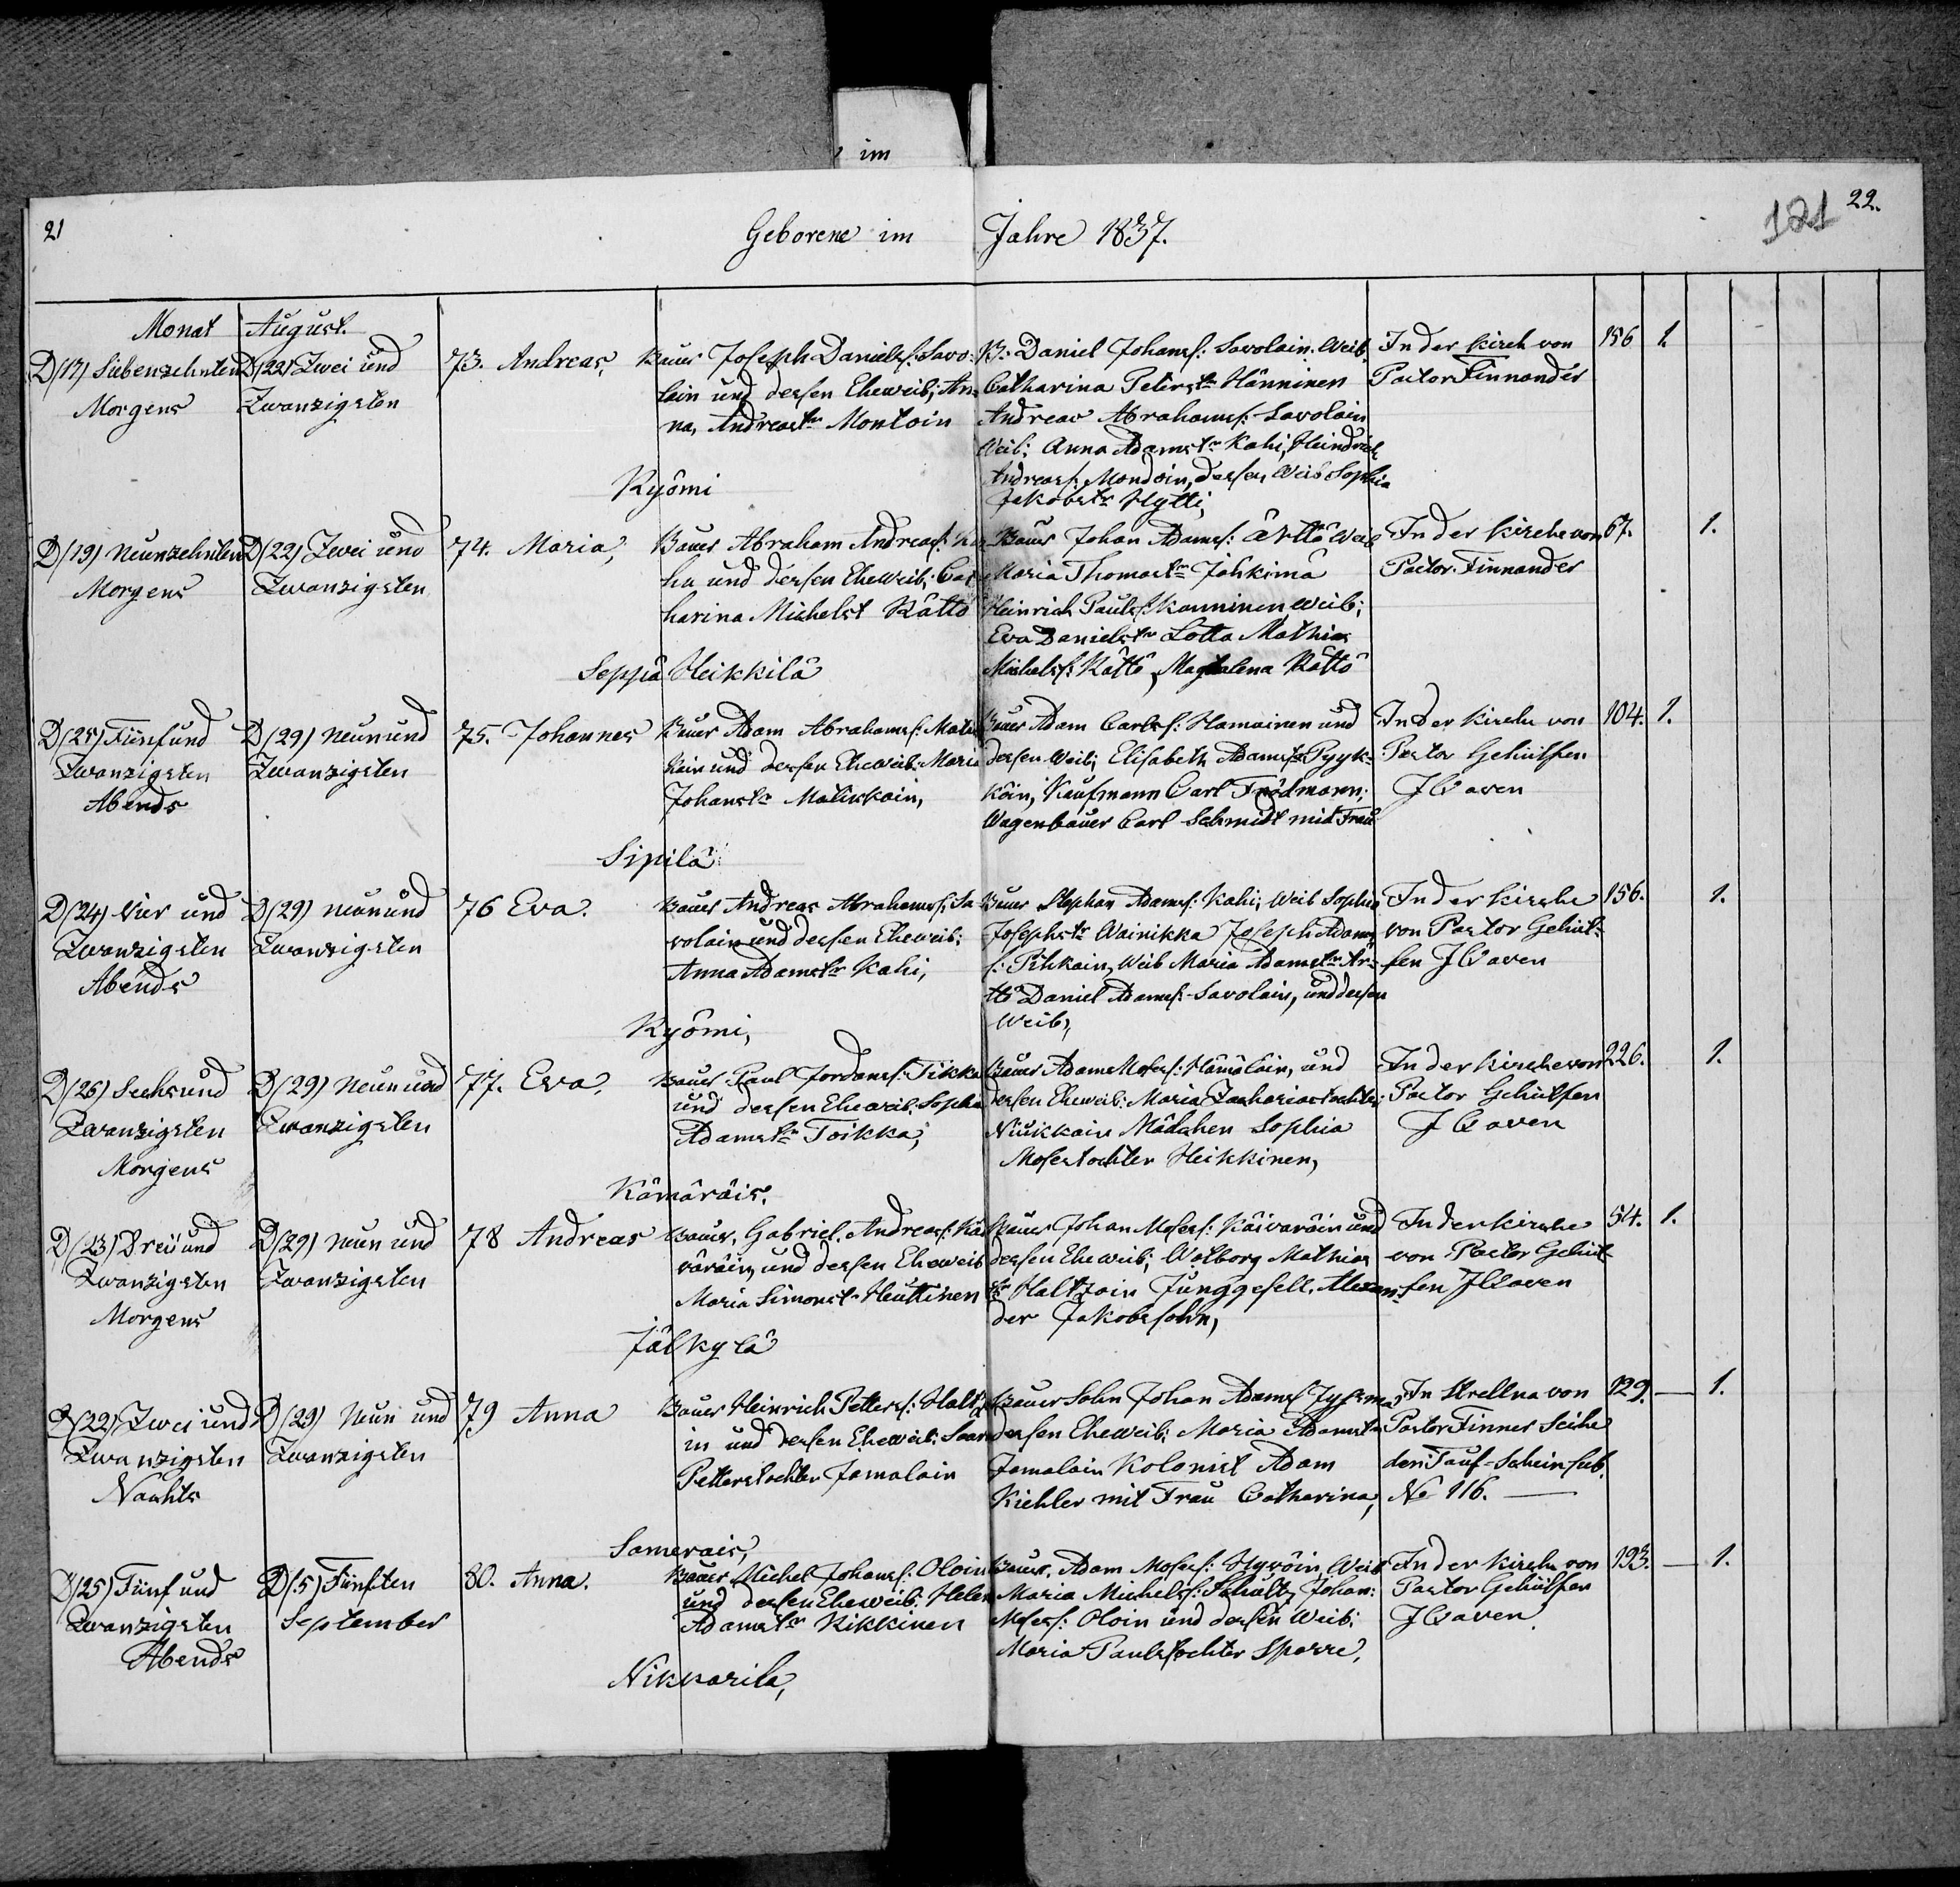 im
21
Geborene im Jahre 1837.
121 22.
Monat August.
D (17) Siebenzehnten D (22) Zwei und 73. Andreas, Bauer Joseph Daniels: Savo- B. Daniel Johans: Savolain. Weib In der Kirch von 156 1.
Morgens Zwanzigsten lain und dessen Eheweib; An- Catharina Peterstr Hänninen Pastor Finnander
na, Andreastr Montoin Andreas Abrahams: Savolain
Weib; Anna Adamstr Kahi, Heindrich
Kyömi Andreass: Mondoin, dessen Weib Sophia
Jakobstr Hytti,
D (19) Neunzehnten D (22) Zwei und 74. Maria, Bauer Abraham Andreas: Bauer Johan Adams: Ärttö Weib In der Kirche von 67. 1.
Morgens Zwanzigsten hu und dessen Eheweib; Cat Maria Thomastr Johkimä Pastor Finnander
harina Michelst Kättö Heinrich Pauls: Kanninen Weib;
Eva Danielstr Lotta Mathias
Seppä Heikkilä Michels: Kättö, Magdalena Kättö
D (25) Fünf und D (29) Neun und 75. Johannes Bauer Adam Abrahams: Malis Bauer Adam Carls: Hamainen und In der Kirche von 104. 1.
Zwanzigsten Zwanzigsten kain und dessen Eheweib. Maria dessen Weib; Elisabeth Adamstr Pyyk- Pastor Gehülfen
Abends Johanstr Maliskain, köin, Kaufmann Carl Frödmann; J Caven
Wagenbauer Carl Schmidt mit Frau
Sipilä
D (24) Vier und D (29) Neun und 76 Eva. Bauer Andreas Abrahams: Sa- Bauer Stephan Adams: Kahi; Weib Sophia In der Kirche 156. 1.
Zwanzigsten Zwanzigsten volain und dessen Eheweib: Josephstr Wainikka Joseph Adam von Pastor Gehül-
Abends Anna Adamstr Kahi, s: Pihkain, Weib Maria Adamstr Är- fen J Caven
ttö Daniel Adams: Savolain, und dessen
Kyömi, Weib,
D (26) Sechs und D (29) Neun und 77. Eva, Bauer Paul Jordans: Tikka Bauer Adam Moses: Hämäläin, und In der Kirche von 226. 1.
Zwanzigsten Zwanzigsten und dessen Eheweib. Sophia dessen Eheweib: Maria Zachariastochter Pastor Gehülfen
Morgens Adamstr Toikka, Niukkain Mädchen Sophia J Caven
Mosestochter Heikkinen,
Kämäräis.
D (23) Drei und D (29) Neun und 78 Andreas Bauer, Gabriel. Andreas: Käi Bauer Johan Moses: Käivaräin und In der Kirche 54. 1.
Zwanzigsten Zwanzigsten väräin, und dessen Eheweib dessen Eheweib; Walborg Mathias von Pastor Gehül-
Morgens Maria Simonst Heuttinen tr Haltzoin Junggesell, Alexan- fen J Caven
der Jakobsohn,
Jälkylä
D (22) Zwei und D (29) Neun und 79 Anna Bauer Heinrich Petters: Haltzo Bauer Sohn Johan Adams In Strellna von 129. — 1.
Zwanzigsten Zwanzigsten in und dessen Eheweib: Saara dessen Eheweib; Maria Adamstr Pastor Finner Seihe
Nachts Petterstochter Jamalain Jamalain Kolonist Adam den Tauf-Schein sub.
Kiehler mit Frau Catharina, No 116. —
Samerais,
D (25) Fünf und D (5) Fünften 80. Anna. Bauer Michel Johans: Oloin Bauer, Adam Moses: Hyvöin, Weib In der Kirche von 193. — 1.
Zwanzigsten September und dessen Eheweib: Helen Maria Michels: Schultz Johan: Pastor Gehülfen
Abends Adamstr Kikkinen Moses: Oloin und dessen Weib: J Caven
Maria Paulstochter Sparre,
Nikkarila,